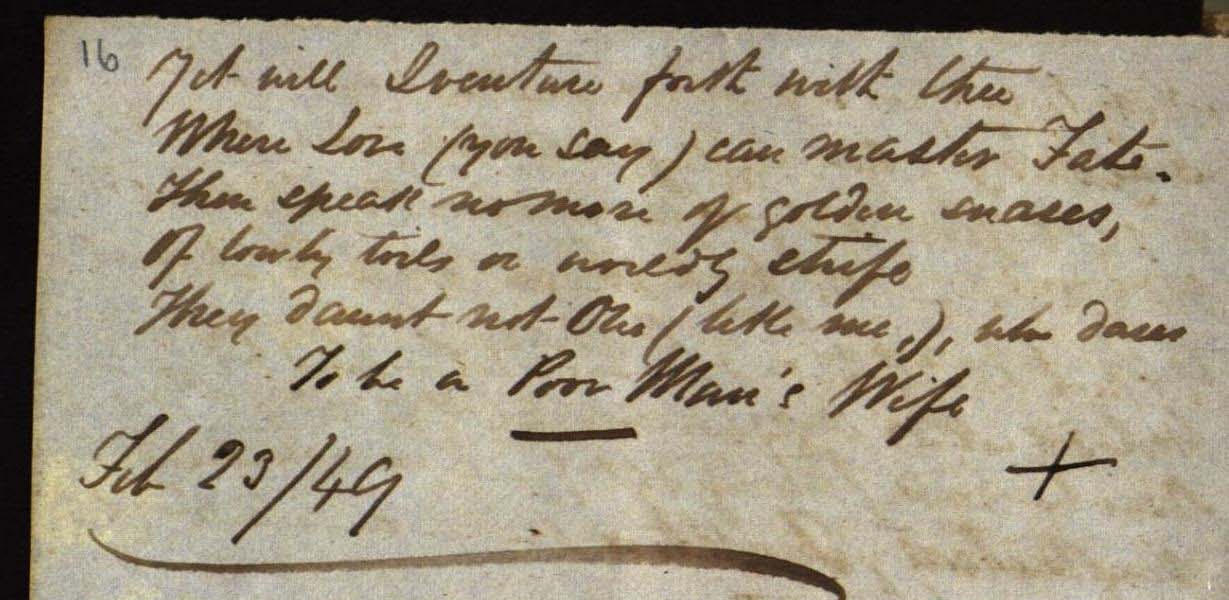 16
Yet will I venture forth with thee
Where Love (you say) can master Fate.
Then speak no more of golden snares,
Of lowly toils or worldly strife
They daunt not One (like me,), who dares
To be a Poor Man's Wife
Feb 23/49
+